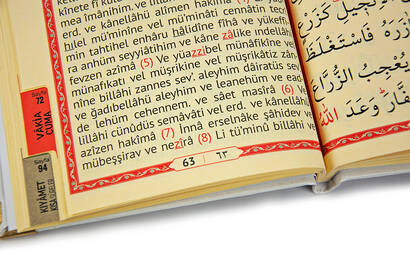 nea îmânihim. ve lillâhi cünûdüs semâvâti
erd. ve kânellâhü alîmen hakîmâ (4) Liyüd
hilel mü'minîne vel mü'minâti cennâtin ter
min tahtihel enhâru hâlidîne fîhâ ve yükeffi
ra anhüm seyyiâtihim ve kâne zâlike indellâhi
fevzen azîmâ (5) Ve yüazzibel münâfikîne ve
münâfikâti vel müşrikîne vel müşrikâtiz zânn
nîne billâhi zannes sev'. aleyhim dâiratüs sev'
ve ğadıbellâhü aleyhim ve leanehüm ve ead
de lehüm cehennem. ve sâet masîrâ (6) Ve
lillâhi cünûdüs semâvâti vel erd. ve kânellâhü
azîzen hakîmâ (7) İnnâ erselnâke şâhidev ve
mübeşşirav ve nezîrâ (8) Li tü'minû billâhi ve
63
٦٣
Sayfa
72
VÂKİA
CUMA
Sayfa
94
KIYÂMET
KISA SURELER
فَاسْتَغْلَظَ
يُعْجِبُ الزُّرَّاعَ
وَعَدَ اللّٰهُ